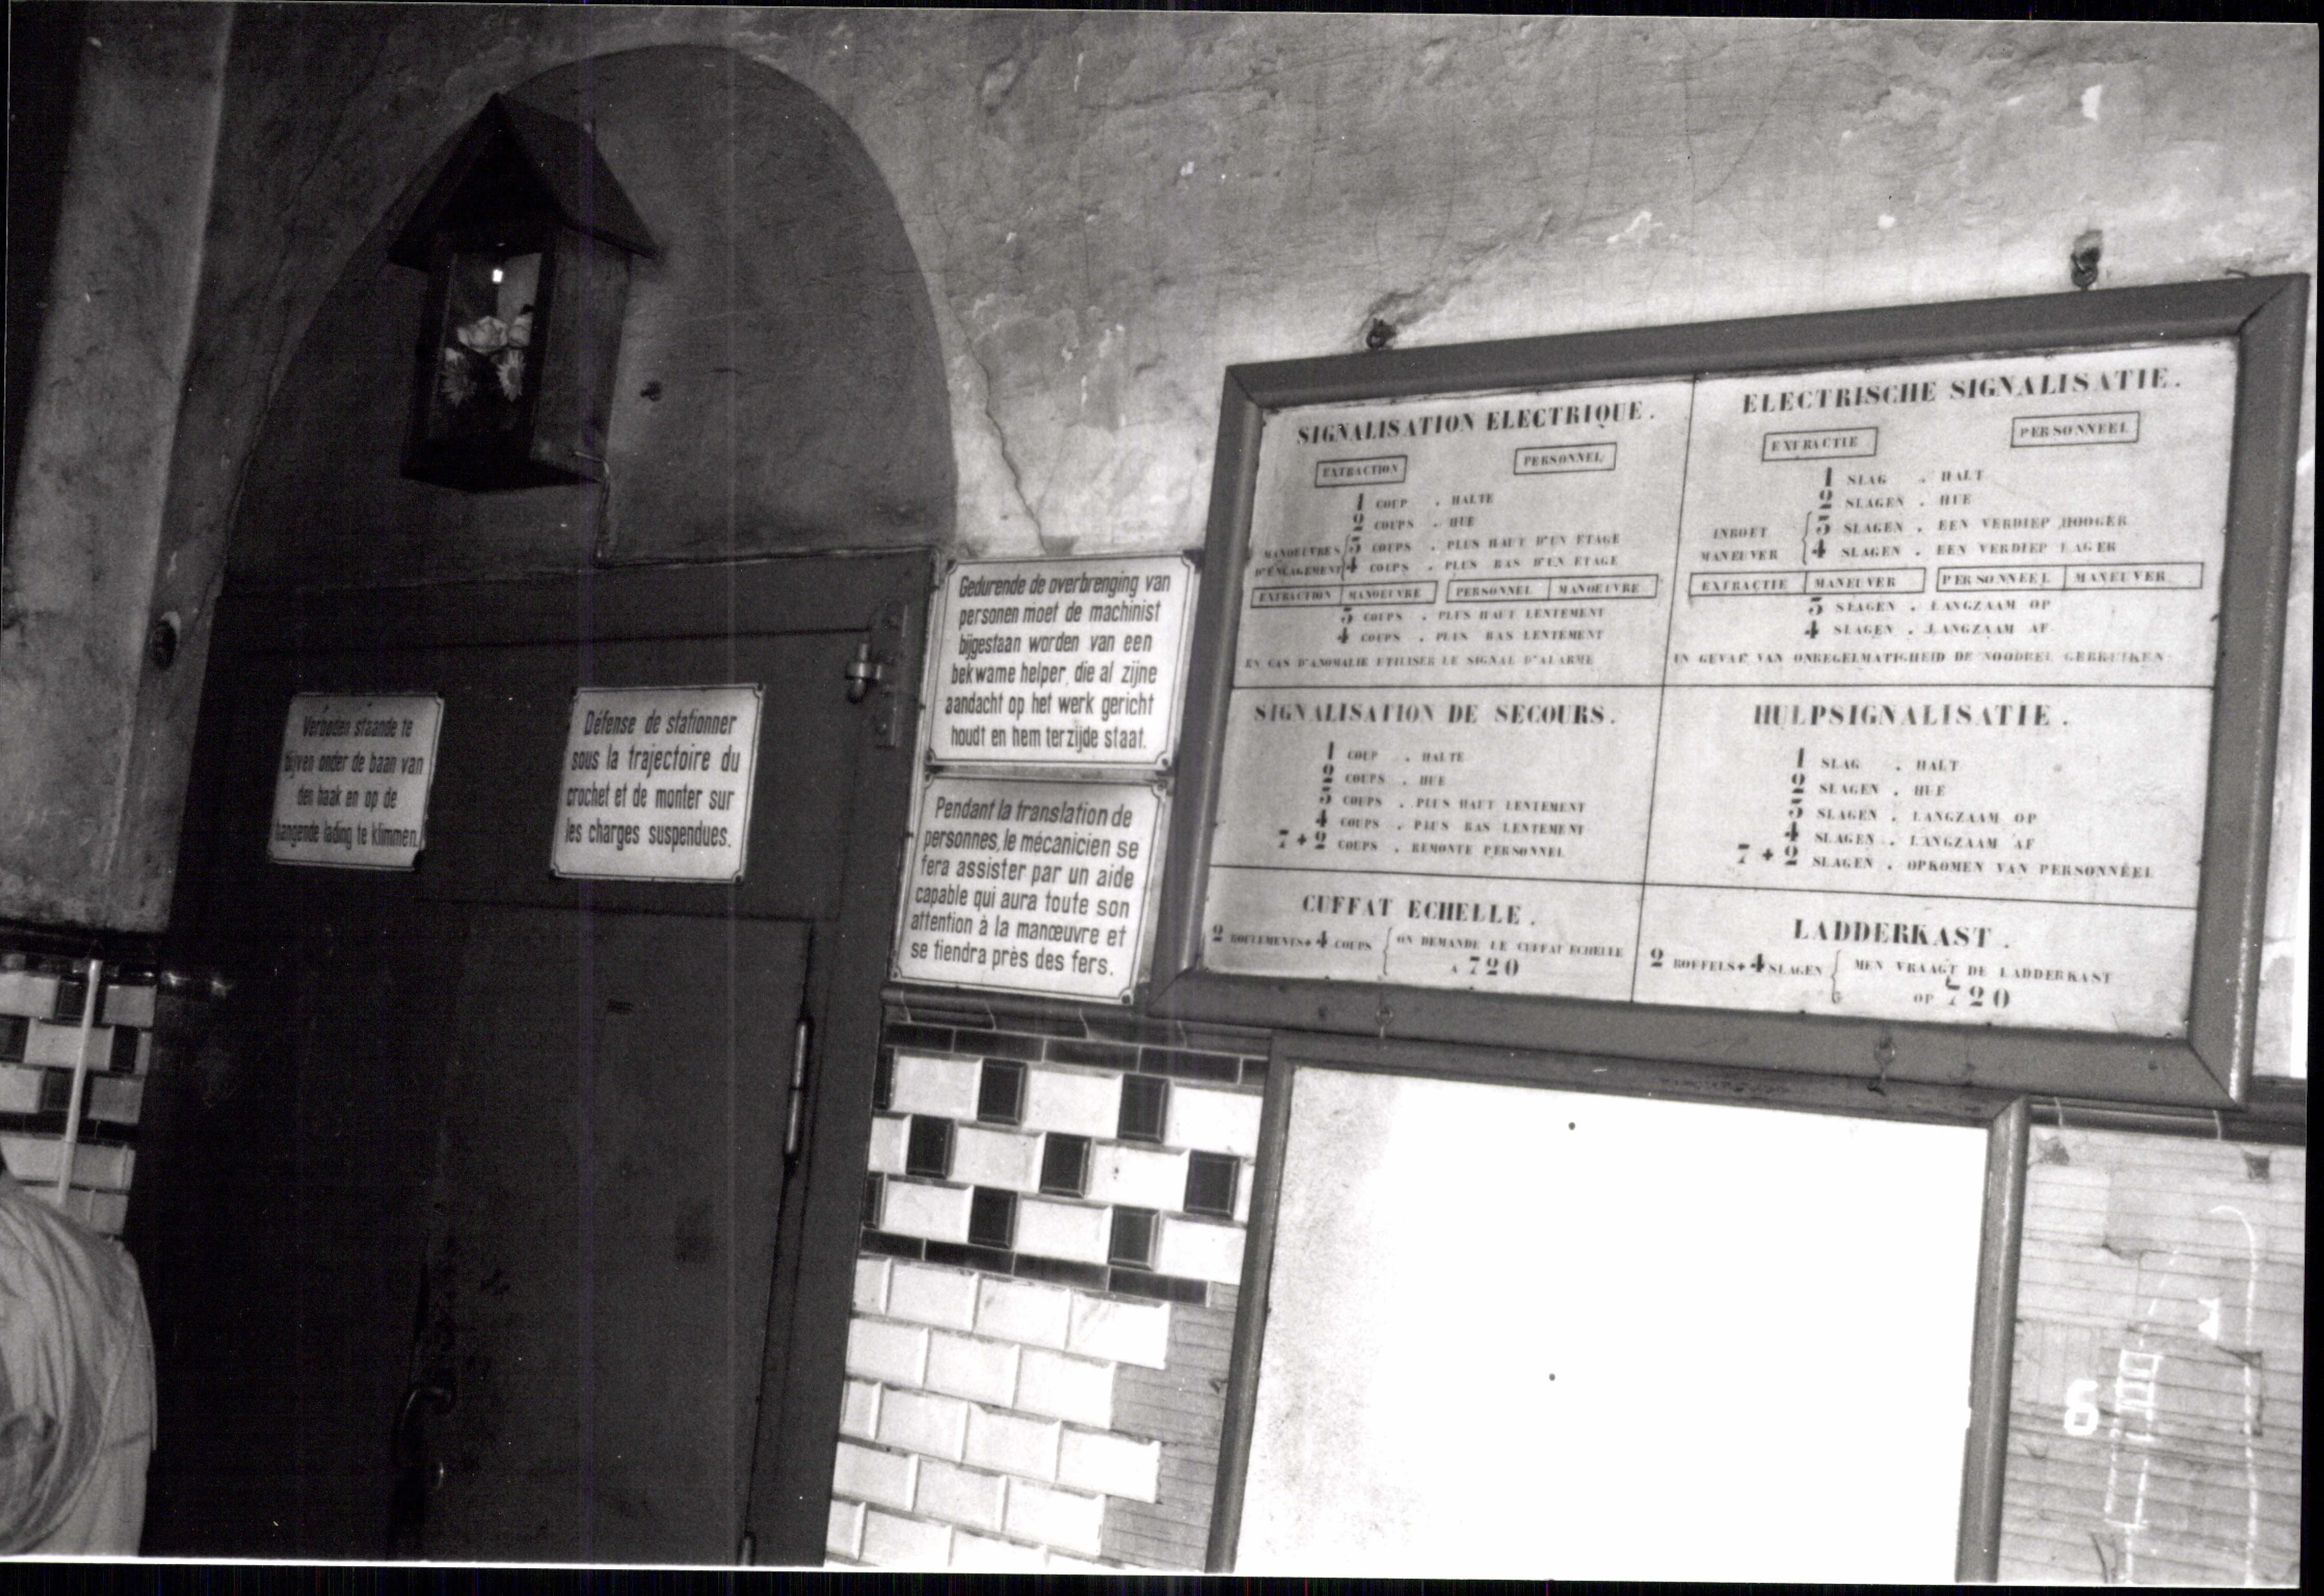 Verboden staande te
blijven onder de baan van
den haak en op de
hangende lading te klimmen.
Défense de stationner
sous la trajectoire du
crochet et de monter sur
les charges suspendues.
Gedurende de overbrenging van
personen moet de machinist
bijgestaan worden van een
bekwame helper, die al zijne
aandacht op het werk gericht
houdt en hem terzijde staat.
Pendant la translation de
personnes, le mécanicien se
fera assister par un aide
capable qui aura toute son
attention à la manœuvre et
se tiendra près des fers.
SIGNALISATION ELECTRIQUE.
EXTRACTION PERSONNEL
1 COUP . HALTE
2 COUPS . HUE
MANOEUVRES 3 COUPS . PLUS HAUT D'UN ETAGE
D'ENCAGEMENT 4 COUPS . PLUS BAS D'UN ETAGE
EXTRACTION MANOEUVRE PERSONNEL MANOEUVRE
3 COUPS . PLUS HAUT LENTEMENT
4 COUPS . PLUS BAS LENTEMENT
EN CAS D'ANOMALIE UTILISER LE SIGNAL D'ALARME
ELECTRISCHE SIGNALISATIE.
EXTRACTIE PERSONNEEL
1 SLAG . HALT
2 SLAGEN . HUE
INBOET 3 SLAGEN . EEN VERDIEP HOOGER
MANEUVER 4 SLAGEN . EEN VERDIEP LAGER
EXTRACTIE MANEUVER PERSONNEEL MANEUVER
3 SLAGEN . LANGZAAM OP
4 SLAGEN . LANGZAAM AF
IN GEVAL VAN ONREGELMATIGHEID DE NOODBEL GEBRUIKEN
SIGNALISATION DE SECOURS.
1 COUP . HALTE
2 COUPS . HUE
3 COUPS . PLUS HAUT LENTEMENT
4 COUPS . PLUS BAS LENTEMENT
7+2 COUPS . REMONTE PERSONNEL
HULPSIGNALISATIE.
1 SLAG . HALT
2 SLAGEN . HUE
3 SLAGEN . LANGZAAM OP
4 SLAGEN . LANGZAAM AF
7+2 SLAGEN . OPKOMEN VAN PERSONNEEL
CUFFAT ECHELLE.
2 ROULEMENTS+4 COUPS ON DEMANDE LE CUFFAT ECHELLE
A 720
LADDERKAST.
2 ROFFELS+4 SLAGEN MEN VRAAGT DE LADDERKAST
OP 720
6